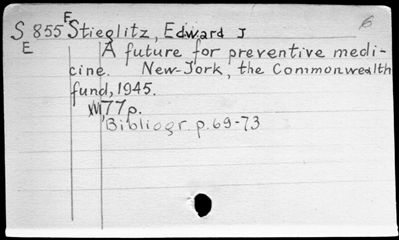 S 855 F Stieglitz, Edward J 6
E A future for preventive medi-
cine. New-Jork, the Commonwealth
fund, 1945.
XVI, 77 p.
Bibliogr. p. 69-73